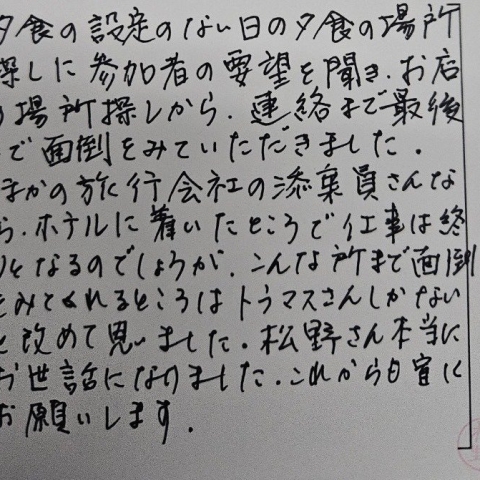 夕食の設定のない日の夕食の場所
探しに参加者の要望を聞き、お店
の場所探しから、連絡まで最後
まで面倒をみていただきました。
ほかの旅行会社の添乗員さんな
ら、ホテルに着いたところで仕事は終
りとなるのでしょうが、こんな所まで面倒
をみてくれるところはトラマスさんしかない
と改めて思いました。松野さん本当に
お世話になりました。これからも宜しく
お願いします。